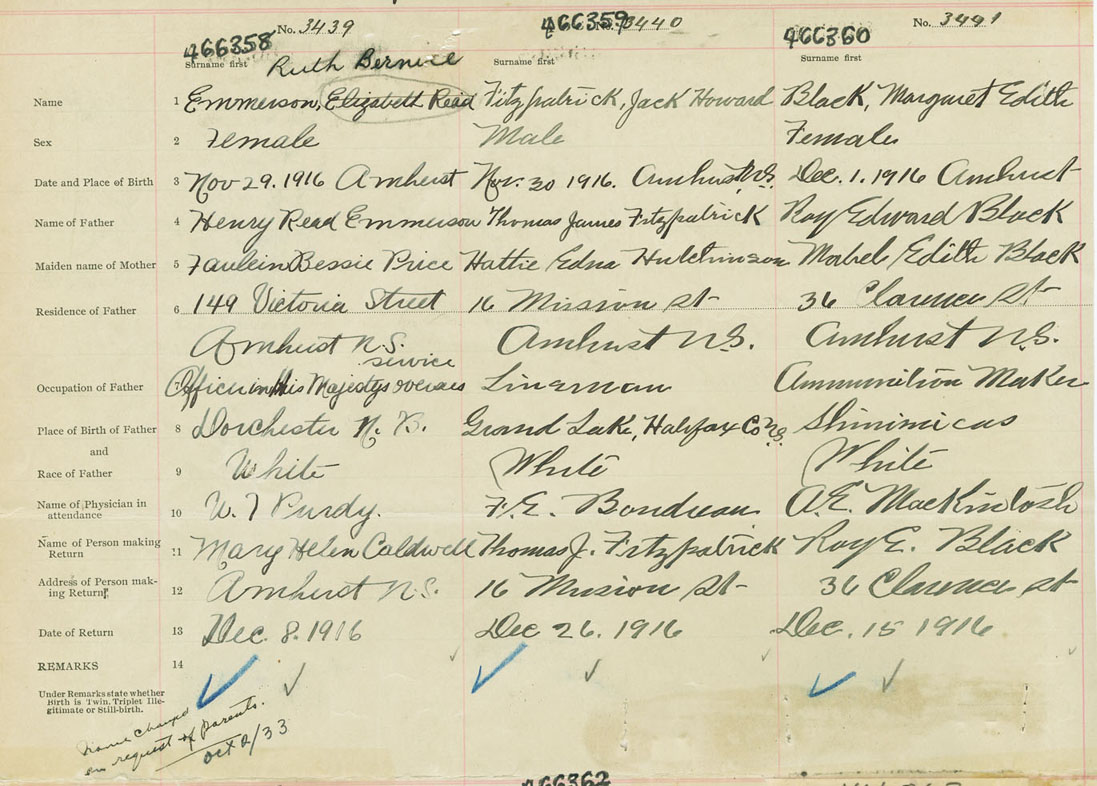 No. 3439 No. 3440 No. 3441
466358 466359 466360
Surname first Surname first Surname first
Ruth Bernice
Name 1 Emmerson, Elizabeth Read Fitzpatrick, Jack Howard Black, Margaret Edith
Sex 2 Female Male Female
Date and Place of Birth 3 Nov 29. 1916 Amherst Nov. 30 1916. Amherst N.S. Dec. 1. 1916 Amherst
Name of Father 4 Henry Read Emmerson Thomas James Fitzpatrick Roy Edward Black
Maiden name of Mother 5 Bessie Price Hattie Edna Hutchinson Mabel Edith Black
Residence of Father 6 149 Victoria Street 16 Mission St 36 Clarence St
Amherst N.S. Amherst N.S. Amherst N.S.
service
Occupation of Father 7 Officer in His Majestys overseas Lineman Ammunition Maker
Place of Birth of Father 8 Dorchester N.B. Grand Lake, Halifax Co N.S. Shinimicas
and
Race of Father 9 White White White
Name of Physician in attendance 10 W. T Purdy. F. E. Boudreau A. E. MacKintosh
Name of Person making Return 11 Mary Helen Caldwell Thomas J. Fitzpatrick Roy E. Black
Address of Person making Return 12 Amherst N.S. 16 Mission St 36 Clarence st
Date of Return 13 Dec. 8. 1916 Dec 26. 1916 Dec. 15 1916
REMARKS 14
Under Remarks state whether
Birth is Twin, Triplet Ille-
gitimate or Still-birth.
Name changed
on request of parents.
Oct 2/33
466362